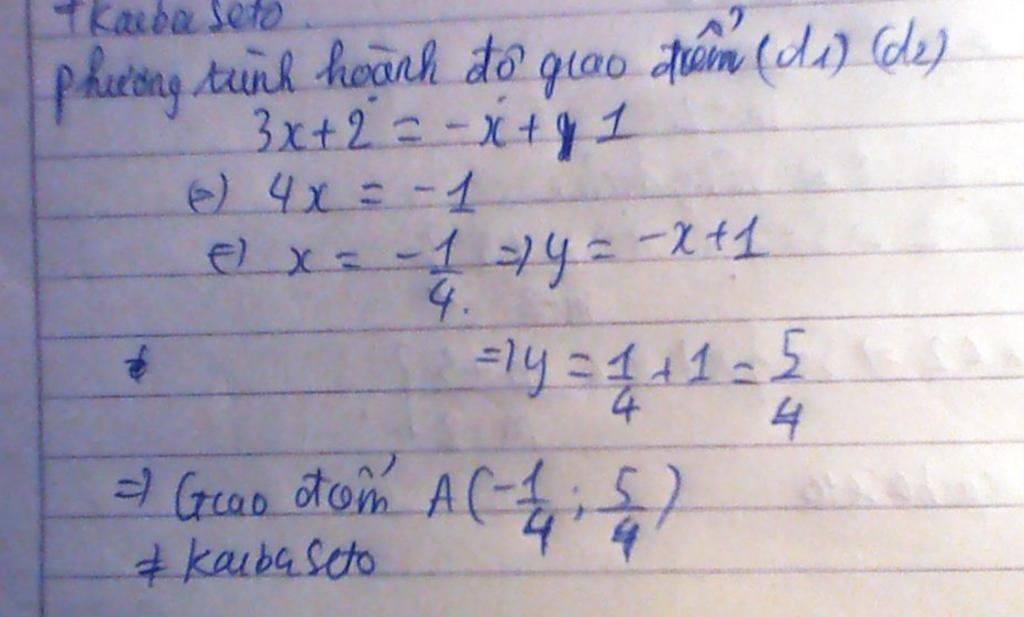 + Kaiba Seto.
phương trình hoành độ giao điểm (d1) (d2)
3x+2 = -x+1
(=) 4x = -1
(=) x = -1/4. =) y = -x+1
=) y = 1/4 + 1 = 5/4
=) Giao điểm A(-1/4; 5/4)
≠ KaibaSeto